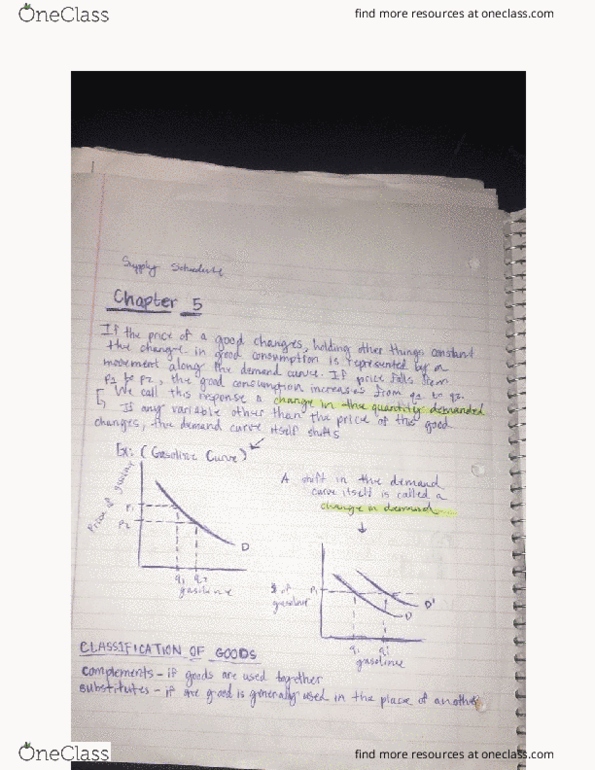 OneClass
find more resources at oneclass.com
Supply Schedule
Chapter 5
If the price of a good changes, holding other things constant
the change in good consumption is represented by a
movement along the demand curve. If price falls from
P1 to P2, the good consumption increases from q1 to q2.
We call this response a change in the quantity demanded
If any variable other than the price of the good
changes, the demand curve itself shifts
Ex: (Gasoline Curve)
A shift in the demand
curve itself is called a
change in demand
Price of
P1
P2
D
q1 q2
gasoline
of
gasoline
P1
D'
D
q1
gasoline
CLASSIFICATION OF GOODS
Complements - if goods are used together
substitutes - if one good is generally used in the place of another
OneClass
find more resources at oneclass.com